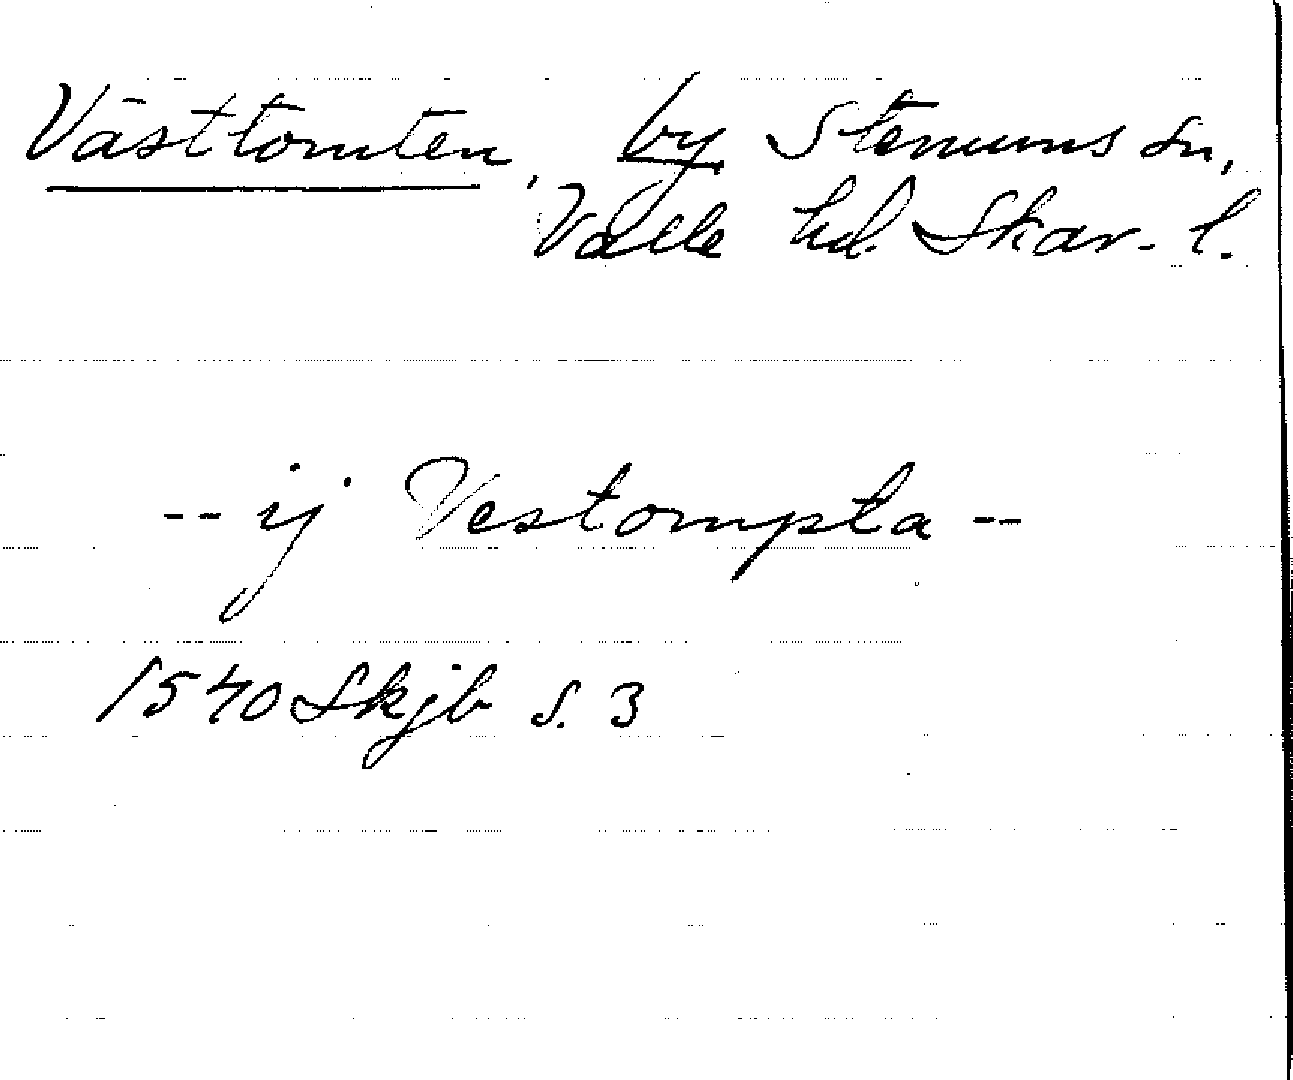 Västtomten, by Stenums sn,
Valle hd. Skar. l.
-- ij Vestompta --
1540 Skjb s. 3